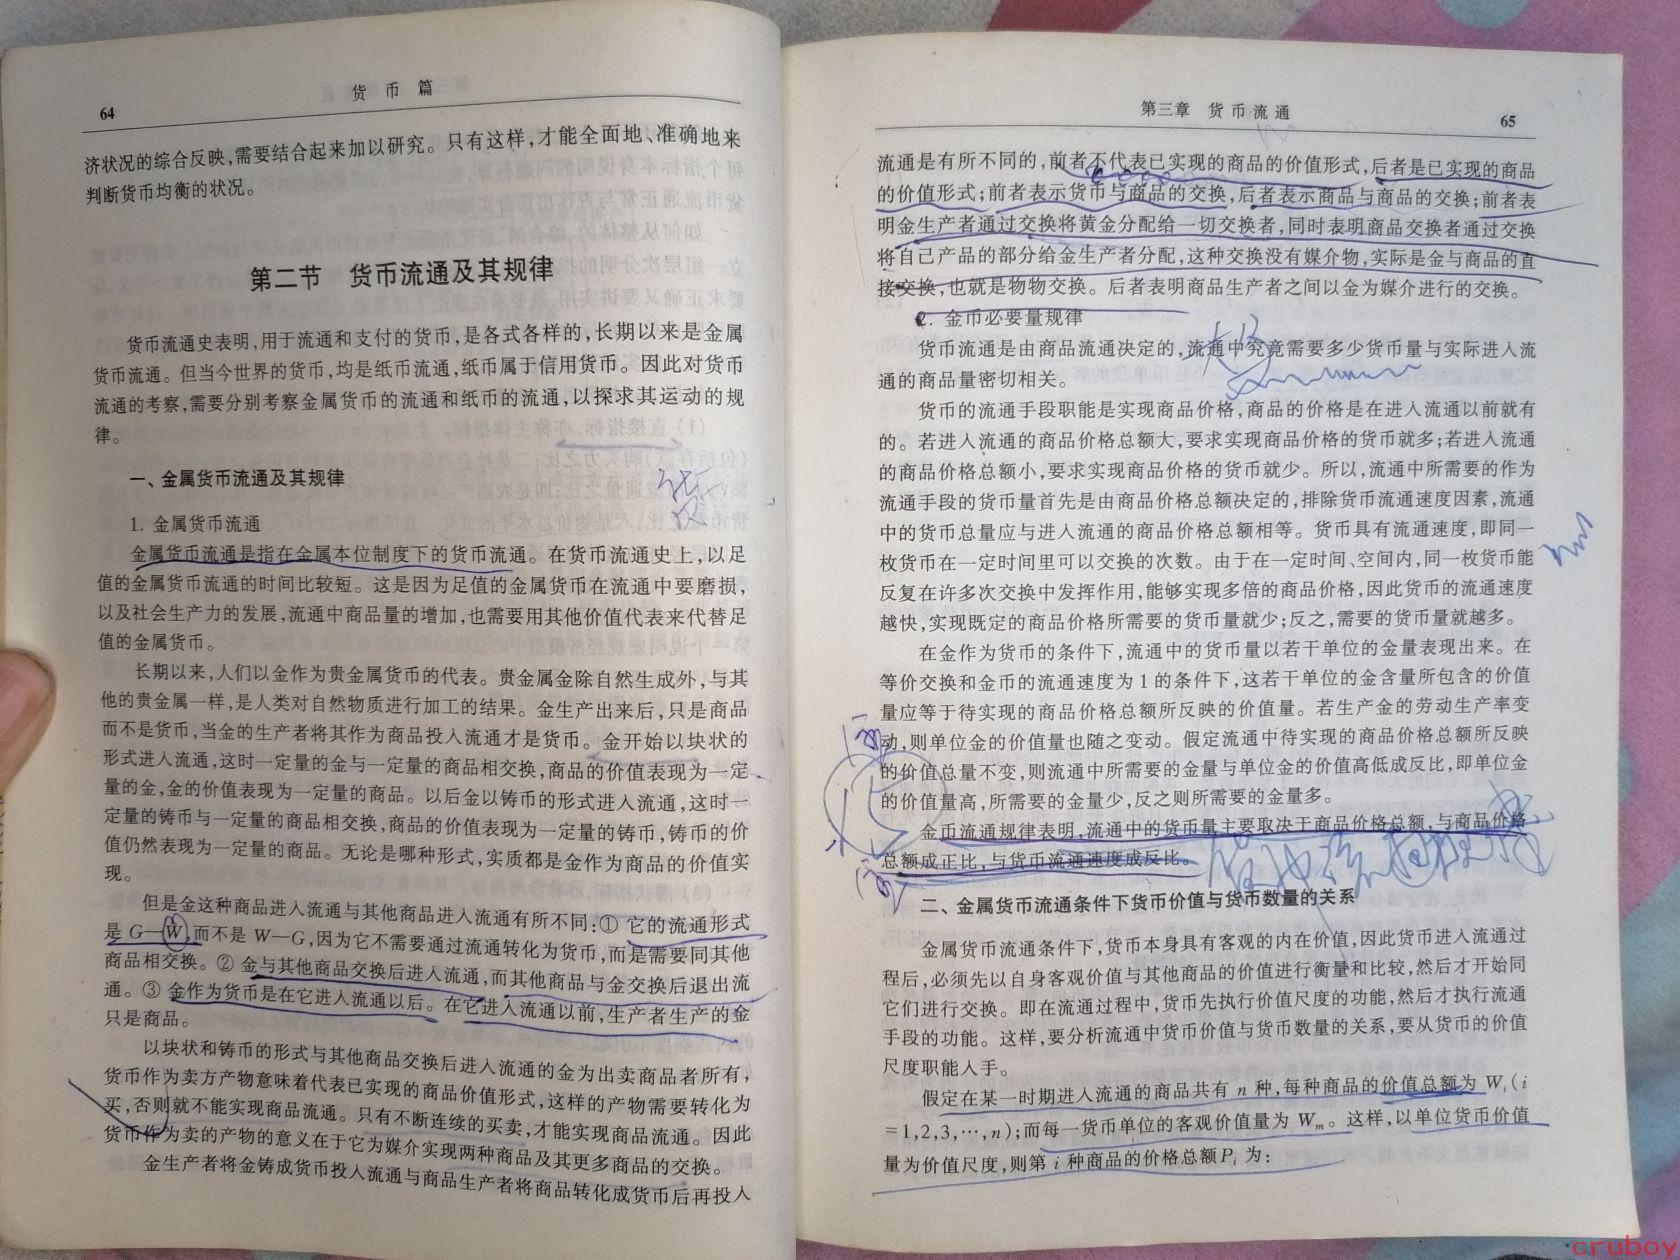 64
货 币 篇
济状况的综合反映,需要结合起来加以研究。只有这样,才能全面地、准确地来
判断货币均衡的状况。
第二节 货币流通及其规律
货币流通史表明,用于流通和支付的货币,是各式各样的,长期以来是金属
货币流通。但当今世界的货币,均是纸币流通,纸币属于信用货币。因此对货币
流通的考察,需要分别考察金属货币的流通和纸币的流通,以探求其运动的规
律。
一、金属货币流通及其规律
1. 金属货币流通
金属货币流通是指在金属本位制度下的货币流通。在货币流通史上,以足
值的金属货币流通的时间比较短。这是因为足值的金属货币在流通中要磨损,
以及社会生产力的发展,流通中商品量的增加,也需要用其他价值代表来代替足
值的金属货币。
长期以来,人们以金作为贵金属货币的代表。贵金属金除自然生成外,与其
他的贵金属一样,是人类对自然物质进行加工的结果。金生产出来后,只是商品
而不是货币,当金的生产者将其作为商品投入流通才是货币。金开始以块状的
形式进入流通,这时一定量的金与一定量的商品相交换,商品的价值表现为一定
量的金,金的价值表现为一定量的商品。以后金以铸币的形式进入流通,这时一
定量的铸币与一定量的商品相交换,商品的价值表现为一定量的铸币,铸币的价
值仍然表现为一定量的商品。无论是哪种形式,实质都是金作为商品的价值实
现。
但是金这种商品进入流通与其他商品进入流通有所不同:① 它的流通形式
是 G—W,而不是 W—G,因为它不需要通过流通转化为货币,而是需要同其他
商品相交换。② 金与其他商品交换后进入流通,而其他商品与金交换后退出流
通。③ 金作为货币是在它进入流通以后。在它进入流通以前,生产者生产的金
只是商品。
以块状和铸币的形式与其他商品交换后进入流通的金为出卖商品者所有,
货币作为卖方产物意味着代表已实现的商品价值形式,这样的产物需要转化为
买,否则就不能实现商品流通。只有不断连续的买卖,才能实现商品流通。因此
货币作为卖的产物的意义在于它为媒介实现两种商品及其更多商品的交换。
金生产者将金铸成货币投入流通与商品生产者将商品转化成货币后再投入
第三章 货币流通
65
流通是有所不同的,前者不代表已实现的商品的价值形式,后者是已实现的商品
的价值形式;前者表示货币与商品的交换,后者表示商品与商品的交换;前者表
明金生产者通过交换将黄金分配给一切交换者,同时表明商品交换者通过交换
将自己产品的部分给金生产者分配,这种交换没有媒介物,实际是金与商品的直
接交换,也就是物物交换。后者表明商品生产者之间以金为媒介进行的交换。
2. 金币必要量规律
货币流通是由商品流通决定的,流通中究竟需要多少货币量与实际进入流
通的商品量密切相关。
货币的流通手段职能是实现商品价格,商品的价格是在进入流通以前就有
的。若进入流通的商品价格总额大,要求实现商品价格的货币就多;若进入流通
的商品价格总额小,要求实现商品价格的货币就少。所以,流通中所需要的作为
流通手段的货币量首先是由商品价格总额决定的,排除货币流通速度因素,流通
中的货币总量应与进入流通的商品价格总额相等。货币具有流通速度,即同一
枚货币在一定时间里可以交换的次数。由于在一定时间、空间内,同一枚货币能
反复在许多次交换中发挥作用,能够实现多倍的商品价格,因此货币的流通速度
越快,实现既定的商品价格所需要的货币量就少;反之,需要的货币量就越多。
在金作为货币的条件下,流通中的货币量以若干单位的金量表现出来。在
等价交换和金币的流通速度为1的条件下,这若干单位的金含量所包含的价值
量应等于待实现的商品价格总额所反映的价值量。若生产金的劳动生产率变
动,则单位金的价值量也随之变动。假定流通中待实现的商品价格总额所反映
的价值总量不变,则流通中所需要的金量与单位金的价值高低成反比,即单位金
的价值量高,所需要的金量少,反之则所需要的金量多。
金币流通规律表明,流通中的货币量主要取决于商品价格总额,与商品价格
总额成正比,与货币流通速度成反比。
二、金属货币流通条件下货币价值与货币数量的关系
金属货币流通条件下,货币本身具有客观的内在价值,因此货币进入流通过
程后,必须先以自身客观价值与其他商品的价值进行衡量和比较,然后才开始同
它们进行交换。即在流通过程中,货币先执行价值尺度的功能,然后才执行流通
手段的功能。这样,要分析流通中货币价值与货币数量的关系,要从货币的价值
尺度职能入手。
假定在某一时期进入流通的商品共有 n 种,每种商品的价值总额为 Wᵢ(i
=1,2,3,…,n);而每一货币单位的客观价值量为 Wₘ。这样,以单位货币价值
量为价值尺度,则第 i 种商品的价格总额Pᵢ为:
cruboy